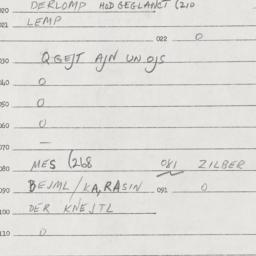 020 DERLOMP HOD GEGLANCT (210
021 LEMP
022 O
030 QGEJT AJN UN OJS
040 O
050 O
060 O
070 —
080 MES (268 081 ZILBER
090 BEJML/KA,RASIN 091 O
100 DER KNEJTL
110 O